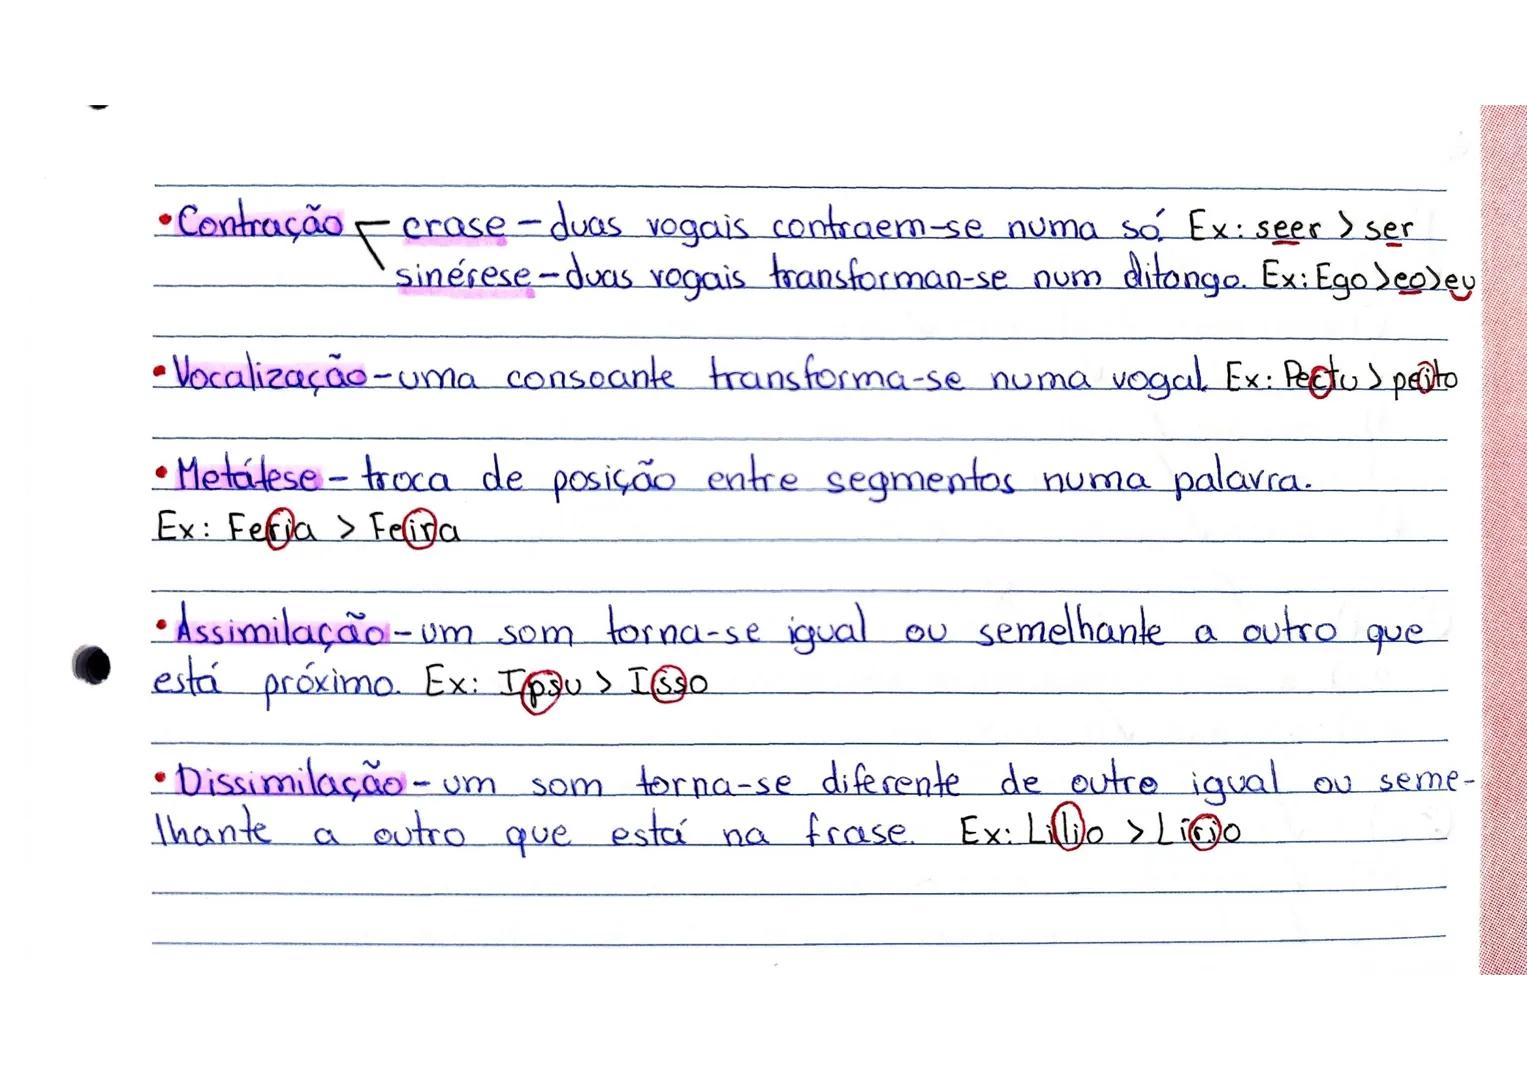 •Contração crase - duas vogais contraem-se numa só. Ex: seer > ser
sinérese - duas vogais transforman-se num ditongo. Ex: Ego > eo > eu
•Vocalização - uma consoante transforma-se numa vogal. Ex: Pectu > peito
•Metátese - troca de posição entre segmentos numa palavra.
Ex: Feria > Feira
•Assimilação - um som torna-se igual ou semelhante a outro que
está próximo. Ex: Ipsu > Isso
•Dissimilação - um som torna-se diferente de outro igual ou seme-
lhante a outro que está na frase. Ex: Lilio > Lírio